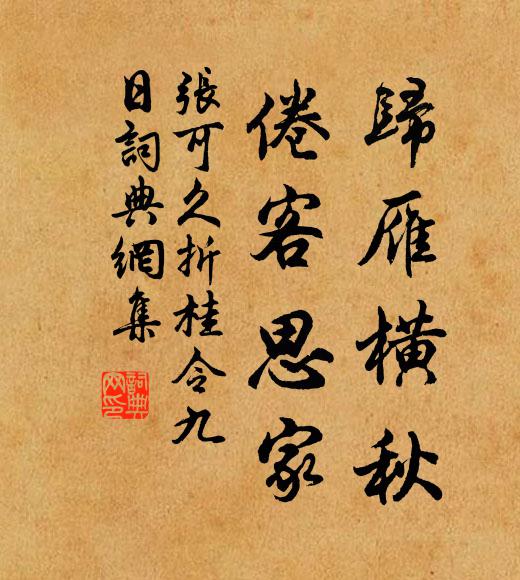 歸雁橫秋
倦客思家
張可久折桂令九
日詞典網集
詞典
網印